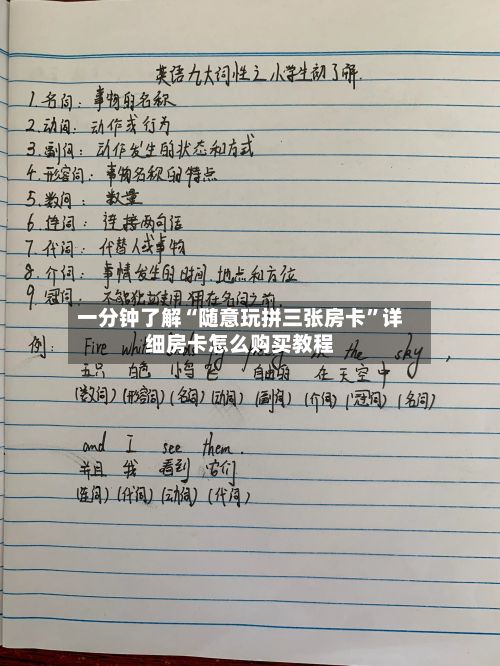 英语九大词性之小学生初了解.
1.名词：事物的名称
2.动词：动作或行为
3.副词：动作发生的状态和方式
4.形容词：事物名称的特点
5.数词：数量
6.连词：连接两句话
7.代词：代替人或事物
8.介词：事情发生的时间.地点和方位
9.冠词：不能独立使用.用在名词之前.
一分钟了解“随意玩拼三张房卡”详
细房卡怎么购买教程
例： Five the sky ,
五只 白色 小鸟 飞 自由的 在天空中
(数词) (形容词) (名词) (动词) (副词) (介词) (冠词) (名词)
and I see them.
并且 我 看到 它们
(连词) (代词) (动词) (代词)